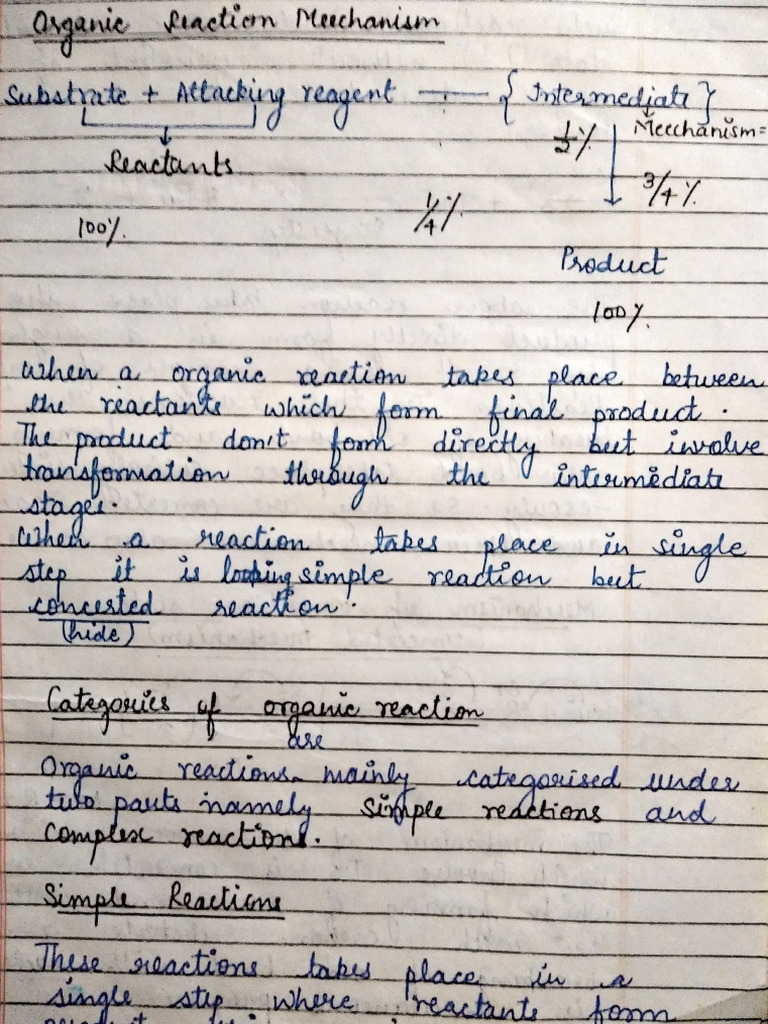 Organic Reaction Meechanism
Substrate + Attacking reagent —— { Intermediate }
Meechanism=
1/2 %
Reactants
3/4 %
100%
1/4 %
Product
100%
When a organic reaction takes place between
the reactants which form final product.
The product don't form directly but involve
transformation through the intermediate
stages.
When a reaction takes place in single
step it is looking simple reaction but
concerted reaction.
(hide)
Categories of organic reaction
are
Organic reactions mainly categorised under
two parts namely simple reactions and
complex reactions.
Simple Reactions
These reactions takes place in a
single step where reactants form